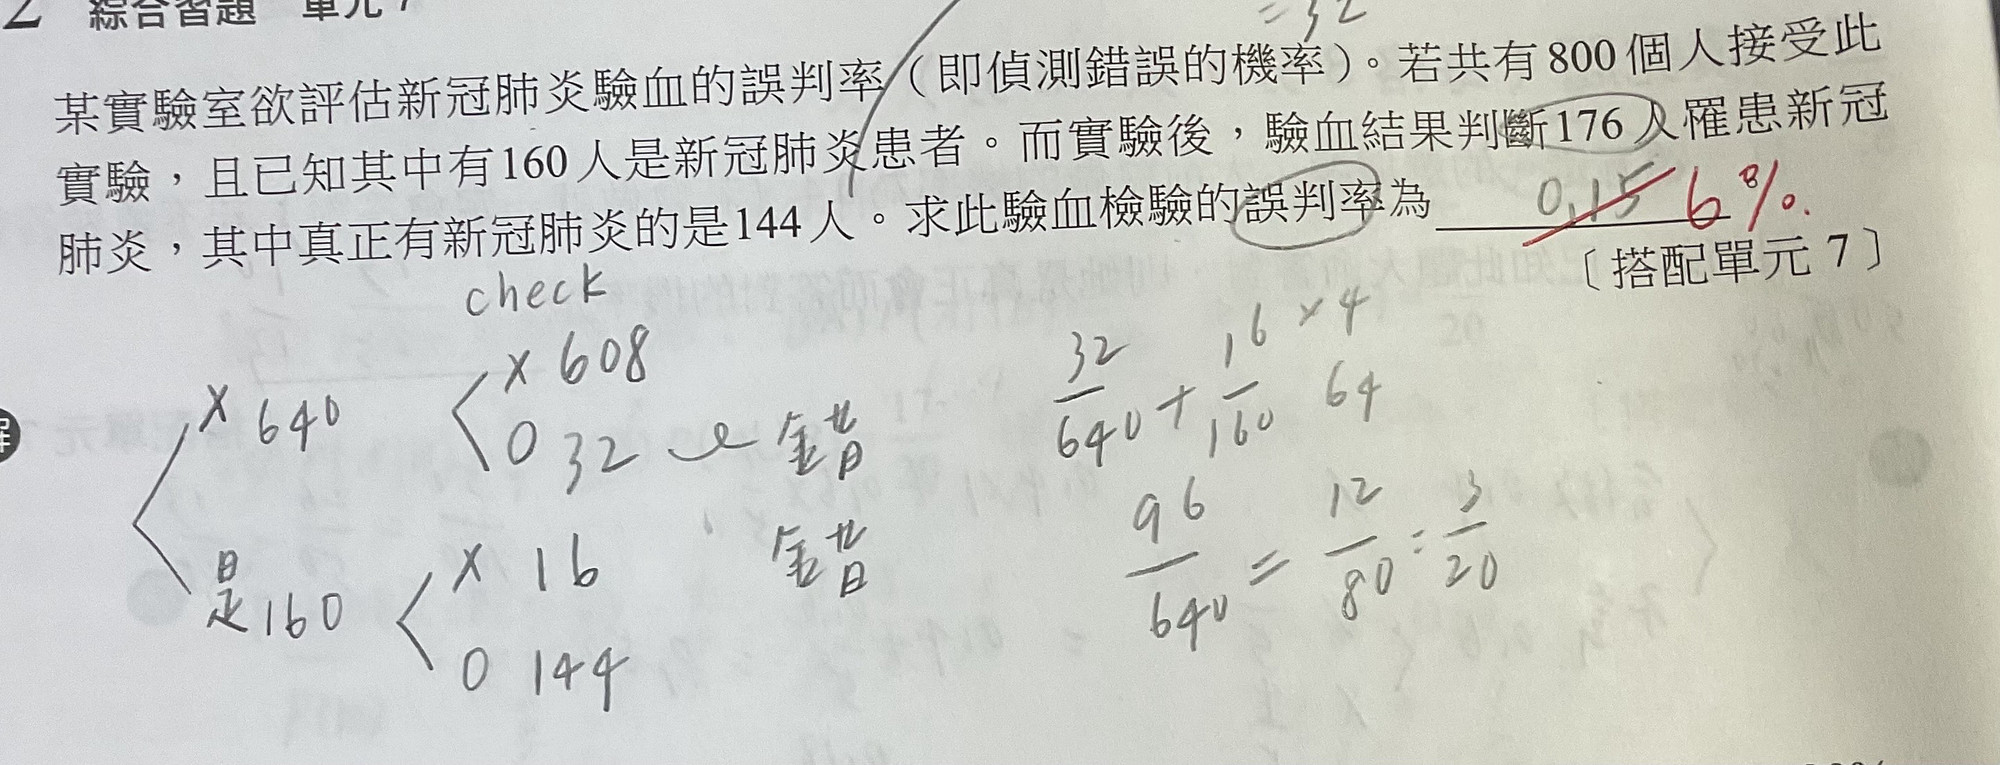 綜合習題 單元7
= 32
某實驗室欲評估新冠肺炎驗血的誤判率(即偵測錯誤的機率)。若共有800個人接受此
實驗,且已知其中有160人是新冠肺炎患者。而實驗後,驗血結果判斷176人罹患新冠
肺炎,其中真正有新冠肺炎的是144人。求此驗血檢驗的誤判率為 0.15 6%.
〔搭配單元 7〕
check
x 640
x 608
0 32 錯
是160
x 16 錯
0 144
32/640 + 16/160 x4 64
96/640 = 12/80 = 3/20